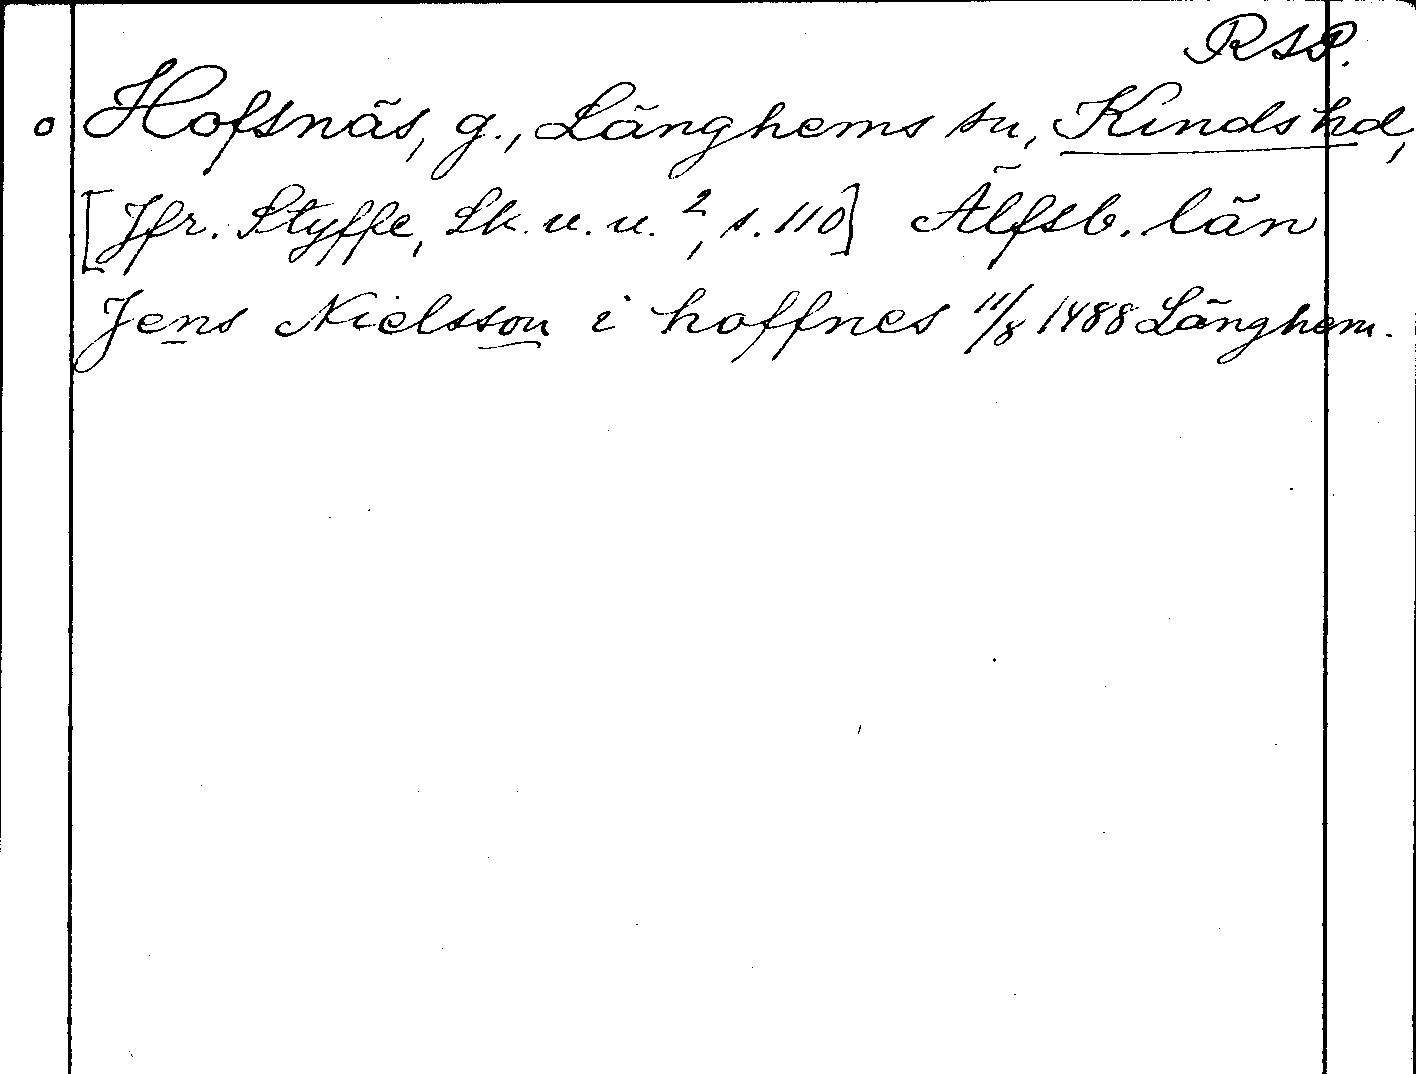 RAP.
o Hofsnäs, g., Länghems sn, Kinds hd,
[Jfr. Styffe, Sk. u. u.², s. 110] Älfsb. län
Jens Nielsson i hoffnes 11/8 1488 Länghem.